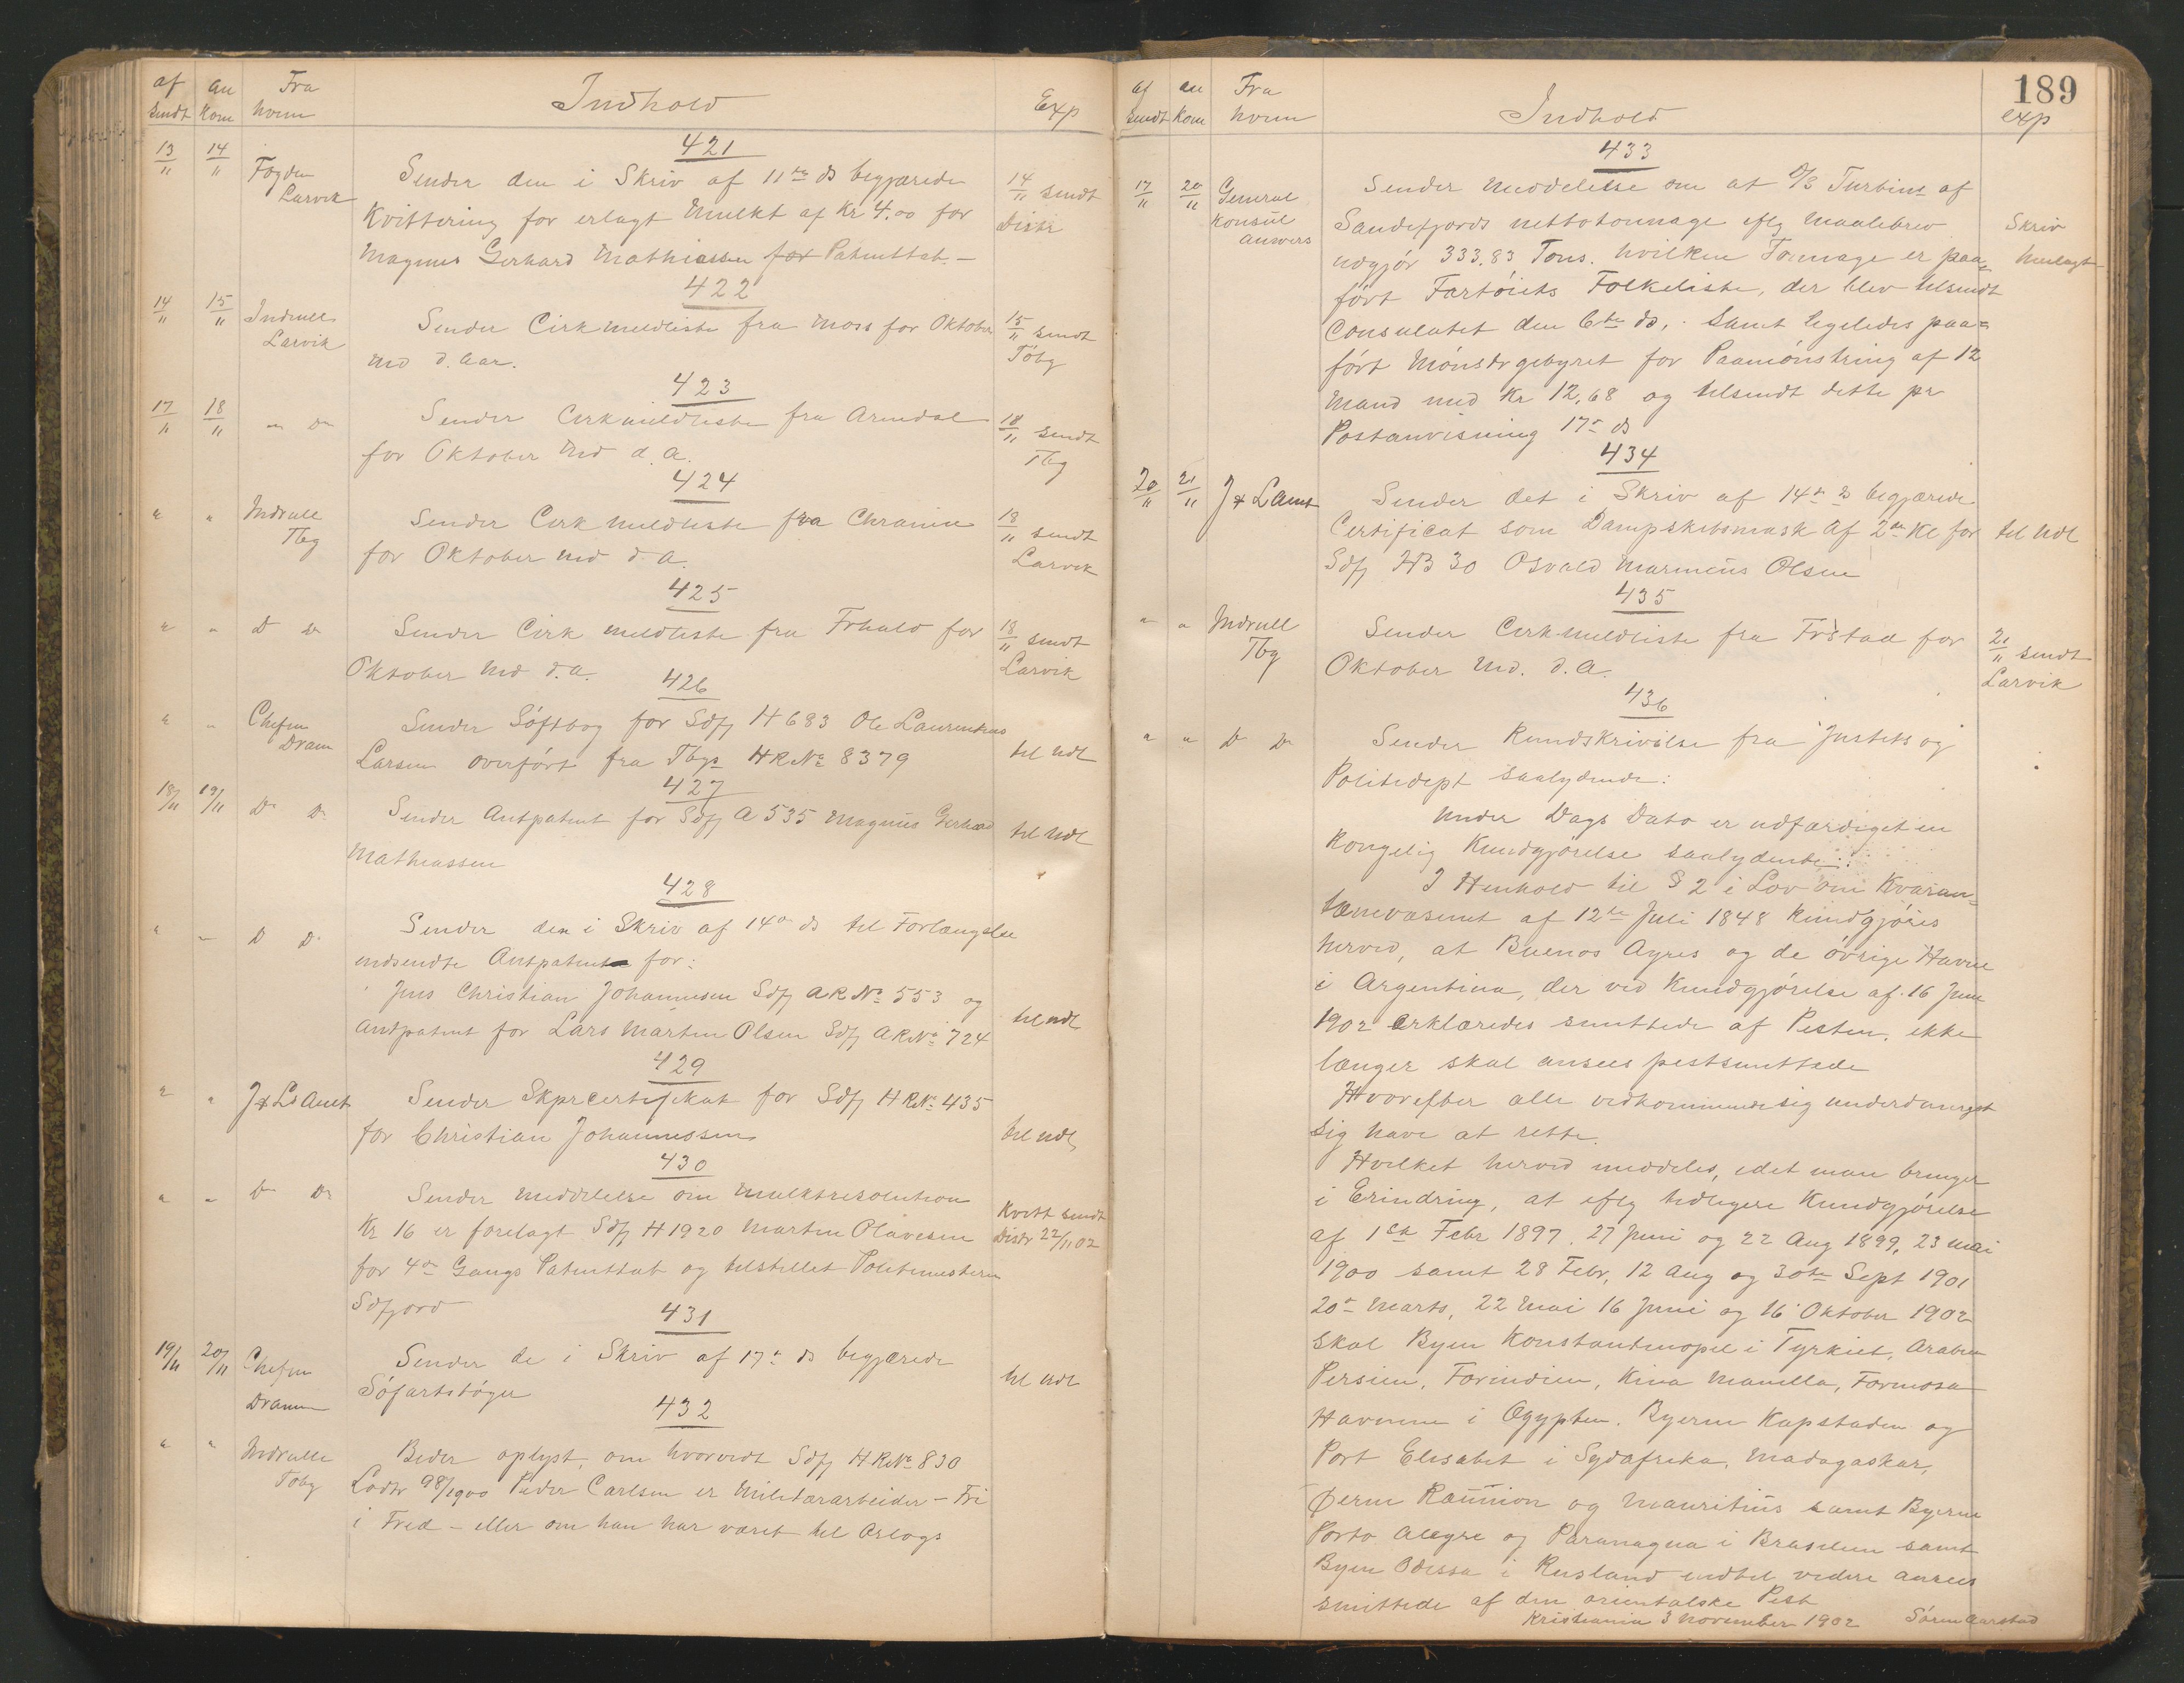 af an Fra Indhold Exp
sendt kom hvem
421
13/11 14/11 Fogden Sender den i Skriv af 11te ds begjærede 14/11 sendt
Larvik Kvittering for erlagt Mulkt af Kr 4.00 for Distr
Magnus Gerhard Mathiassen for Patenttab. -
422
14/11 15/11 Indrull Sender Cirk meldliste fra Moss for Oktober 15/11 sendt
Larvik md d. Aar. Töbg
423
17/11 18/11 " Do Sender Cirkmeldliste fra Arendal 18/11 sendt
for Oktober Md d. a. Tbg
424
" " Indrull Sender Cirk meldliste fra Chrania 18/11 sendt
Tbg for Oktober md d. a. Larvik
425
" " D Do Sender Cirk meldliste fra Frhald for 18/11 sendt
Oktober Md d. a. Larvik
426
" " Chefen Sender Söftbog for Sdfj H 683 Ole Laurentius
Dram Larsen overfört fra Tbgs HR No 8379 til Udl
427
18/11 19/11 Do Do Sender Antpatent for Sdfj A 535 Magnus Gerhard til Udl
Mathiassen
428
" " D Do Sender den i Skriv af 14de ds til Forlængelse
indsendte Antpatent for:
Jens Christian Johannesen Sdfj AR No 553 og
Antpatent for Lars Martin Olsen Sdfj AR No 724 til Udl
429
" " J & Ls Amt Sender Skprcertifikat for Sdfj HR No 435
for Christian Johannessen til Udl
430
" " D Do Sender Meddelelse om Mulktresolution Kvitt sendt
Kr 16 er forelagt Sdfj H 1920 Martin Olavesen Distr 22/11 02
for 4de Gangs Patenttab og tilstillet Politimesteren
Sdfjord
431
19/11 20/11 Chefen Sender de i Skriv af 17de ds begjærede
Dramm Söfartsböger til Udl
432
" " Indrulle Beder oplyst, om hvorvidt Sdfj HR No 830
Tobg Lodtr 98/1900 Peder Carlsen er Militærarbeider - Fri
i Fred - eller om han har været til Orlogs
189
af an Fra Indhold exp
sendt kom hvem
433
17/11 20/11 General Sender Meddelelse om at D/S Turbine af
Konsul Sandefjords nettotonnage eflg Maalebrev Skriv
Anvers udgjör 333,83 Tons. hvilken Tonnage er paa= henlagt
fört Fartöiets Folkeliste, der blev tilsendt
Consulatet den 6te ds, samt ligeledes paa=
fört Mönstrgebyret for Paamönstring af 12
Mand med Kr 12,68 og tilsendt dette pr
Postanvisning 17de ds
434
20/11 21/11 J & L Amt Sender det i Skriv af 14de ds begjærede
Certificat som Dampskibsmask af 2den Kl for til Udl
Sdfj HB 30 Osvald Marinius Olsen
435
" " Indrull Sender Cirk-meldliste fra Frstad for 21/11 sendt
Tbg Oktober Md. d. A. Larvik
436
" " D Do Sender Rundskrivelse fra Justits og
Politidept saalydende:
Under Dags Dato er udfærdiget en
Kongelig Kundgjörelse saalydende:
I Henhold til § 2 i Lov om Kvaran=
tænevæsenet af 12te Juli 1848 kundgjöres
herved, at Buenos Ayres og de övrige Havne
i Argentina, der ved Kundgjörelse af 16 Juni
1902 erklæredes smittede af Pesten, ikke
længer skal ansees pestsmittede
Hvorefter alle vedkommende sig underdanigst
sig have at rette.
Hvilket herved meddeles, idet man bringer
i Erindring, at eflg tidligere Kundgjörelse
af 1ste Febr 1897. 27 Juni og 22 Aug 1899, 23 Mai
1900 samt 28 Febr, 12 Aug og 30te Sept 1901
20de Marts, 22 Mai 16 Juni og 16 Oktober 1902
skal Byen Konstantinopel i Tyrkiet, Arabien
Persien, Forindien, Kina Manilla, Formosa
Havnene i Ægypten. Byerne Kapstaden og
Port Elisabet i Sydafrika, Madagaskar,
Öerne Reunion og Mauritius samt Byerne
Porto Alegre og Paranagua i Brasilien samt
Byen Odessa i Rusland indtil videre ansees
smittede af den orientalske Pest
Kristiania 3 November 1902 Sören Aarstad